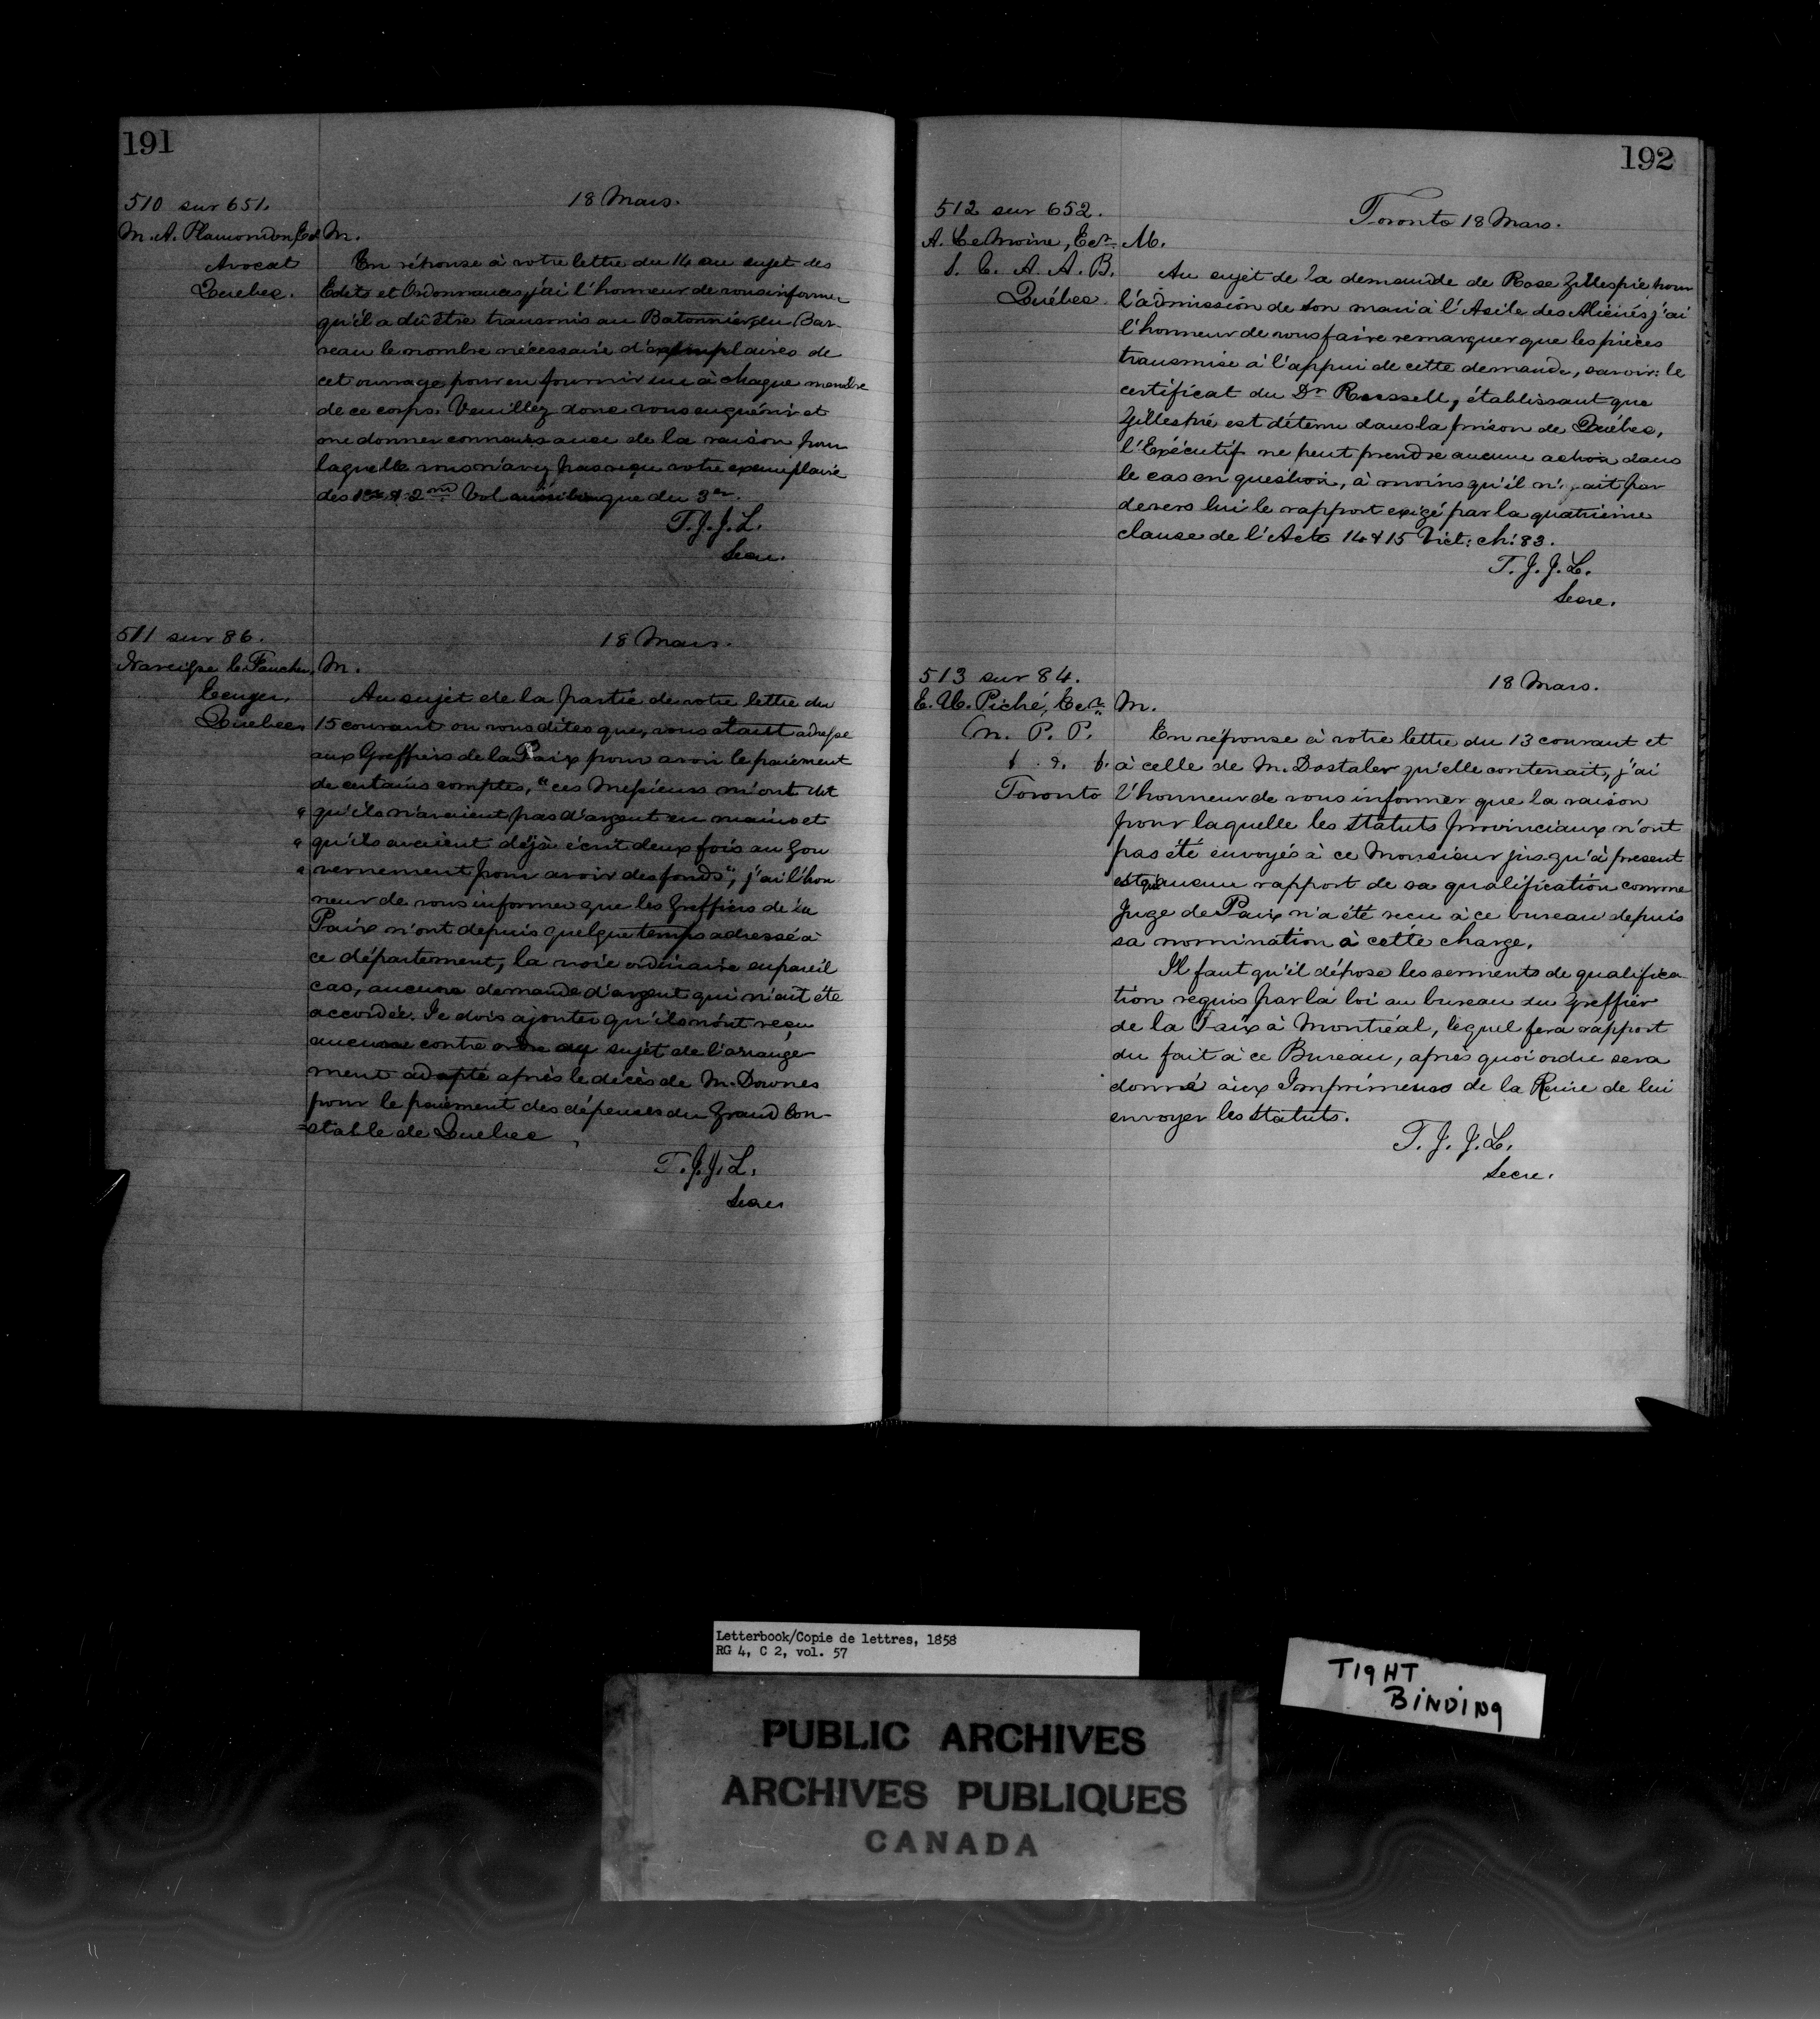 191
510 sur 651.
18 Mars.
M. A. Plamondon, Ecr
M.
Avocat
Quebec.
En réponse à votre lettre du 14 au sujet des
Edits et Ordonnances, j'ai l'honneur de vous informer
qu'il a dû être transmis au Batonnier du Bar-
reau le nombre nécessaire d'exemplaires de
cet ouvrage pour en fournir un à chaque membre
de ce corps. Veuillez donc vous enquérir et
me donner connaissance de la raison pour
laquelle vous n'avez pas reçu votre exemplaire
des 1er & 2me Vol aussi bien que du 3er.
T. J. J. L.
Secre.
511 sur 86.
18 Mars.
Narcisse le Faucher,
M.
Quebec
Au sujet de la partie de votre lettre du
15 courant ou vous dites que, vous étant adressé
aux Greffiers de la Paix pour avoir le paiement
de certains comptes, "ces Messieurs m'ont dit
" qu'ils n'avaient pas d'argent en mains et
" qu'ils avaient déjà écrit deux fois au Gou
" vernement pour avoir des fonds", j'ai l'hon
neur de vous informer que les Greffiers de la
Paix n'ont depuis quelque temps adressé à
ce département, la voie ordinaire en pareil
cas, aucune demande d'argent qui n'ait été
accordée. Je dois ajouter qu'ils n'ont reçu
aucune contre ordre au sujet de l'arrange-
ment adopté après le décès de M. Downes
pour le paiement des dépenses du Grand Con-
=stable de Quebec
T. J. J. L.
Secre
192
512 sur 652.
Toronto 18 Mars.
A. LeMoine, Ecr.
M.
S. C. A. A. B.
Québec.
Au sujet de la demande de Rose Gillespie pour
l'admission de son mari à l'Asile des Aliénés j'ai
l'honneur de vous faire remarquer que les pièces
transmise à l'appui de cette demande, savoir: le
certificat du Dr Roussell, établissant que
Gillespie est détenu dans la prison de Québec,
l'Exécutif ne peut prendre aucune action dans
le cas en question, à moins qu'il n'y ait par
devers lui le rapport exigé par la quatrième
clause de l'Acte 14 & 15 Vict: ch: 83.
T. J. J. L.
Secre.
513 sur 84.
18 Mars.
E. U. Piché, Ecr.
M.
M. P. P.
Toronto
En réponse à votre lettre du 13 courant et
à celle de M. Dostaler qu'elle contenait, j'ai
l'honneur de vous informer que la raison
pour laquelle les Statuts provinciaux n'ont
pas été envoyés à ce Monsieur jusqu'à present
est qu'aucun rapport de sa qualification comme
Juge de Paix n'a été recu à ce bureau depuis
sa nomination à cette charge.
Il faut qu'il dépose les serments de qualifica-
tion requis par la loi au bureau du Greffier
de la Paix à Montréal, lequel fera rapport
du fait à ce Bureau, après quoi ordre sera
donné aux Imprimeurs de la Reine de lui
envoyer les Statuts.
T. J. J. L.
Secre.
Letterbook/Copie de lettres, 1858
RG 4, C 2, vol. 57
TIGHT
BINDING
PUBLIC ARCHIVES
ARCHIVES PUBLIQUES
CANADA